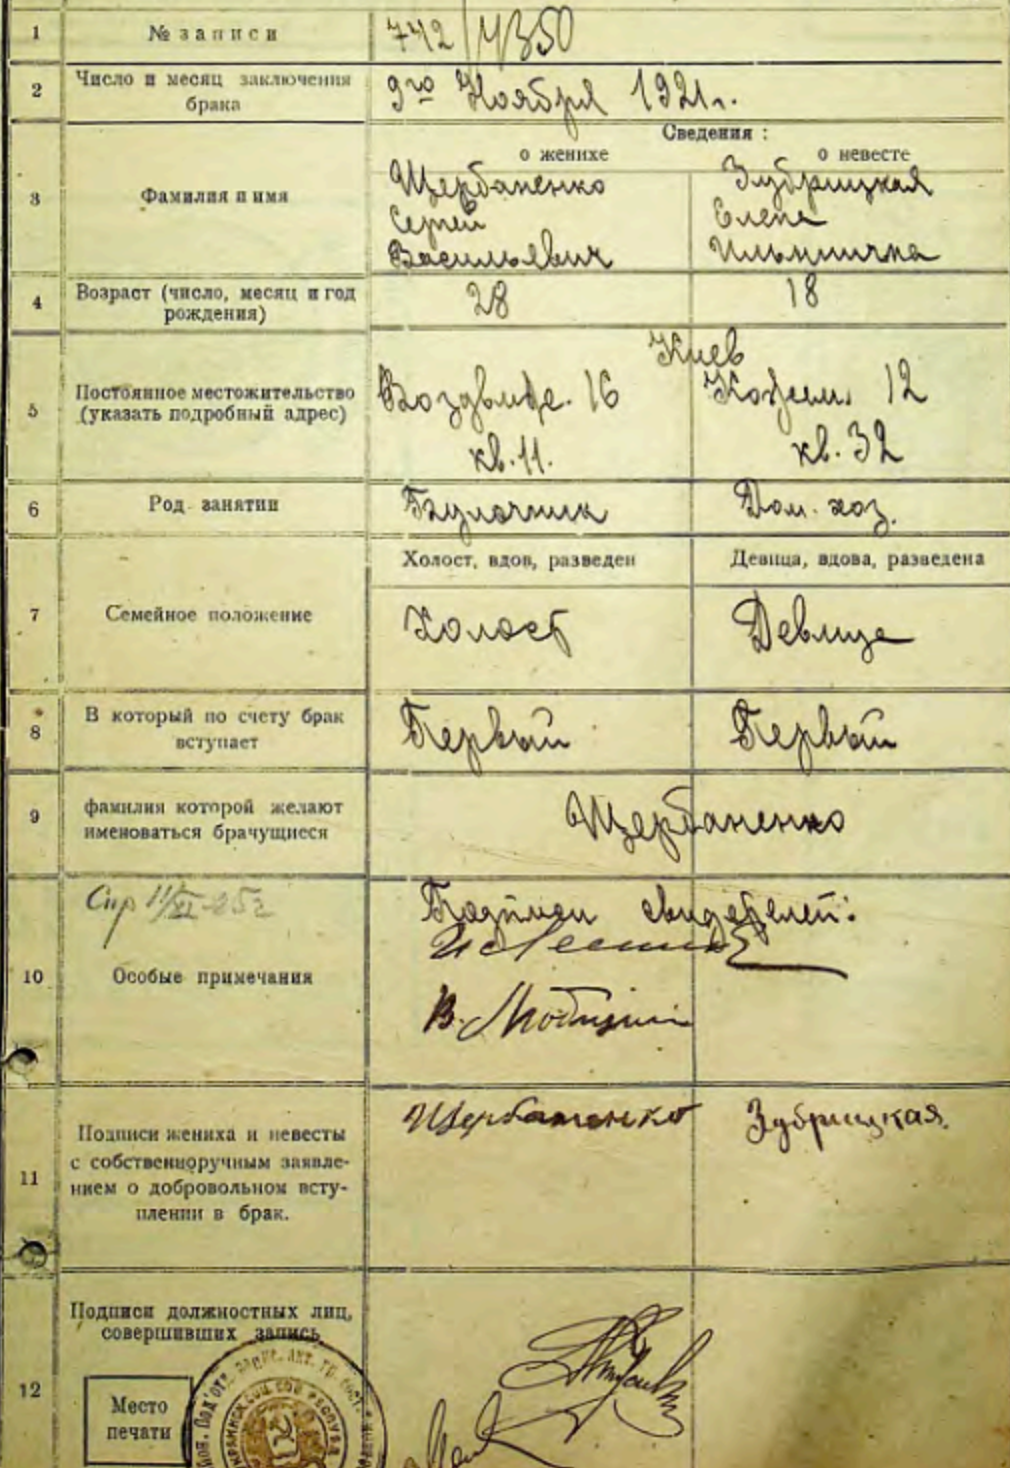 1 № записи 742/4350
2 Число и месяц заключения
брака
9го Ноября 1921г.
Сведения :
о женихе о невесте
3 Фамилия и имя
Щербаненко Зубрицкая
Сергей Елена
Васильевич Ильинична
4 Возраст (число, месяц и год
рождения)
28 18
Киев
5 Постоянное местожительство
(указать подробный адрес)
Воздвиже. 16 Кожем. 12
кв. 11. кв. 32
6 Род занятии Булочник Дом. хоз.
Холост, вдов, разведен Девица, вдова, разведена
7 Семейное положение Холост Девица
8 В который по счету брак
вступает
Первый Первый
9 фамилия которой желают
именоваться брачущиеся
Щербаненко
10 Особые примечания
Подписи свидетелей:
В.
11 Подписи жениха и невесты
с собственноручным заявле-
нием о добровольном всту-
плении в брак.
Щербаненко Зубрицкая
12 Подписи должностных лиц,
совершивших запись
Место
печати